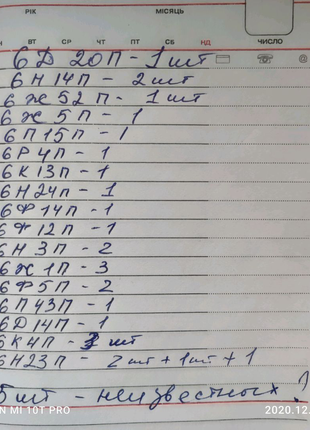 РІК МІСЯЦЬ
ВТ СР ЧТ ПТ СБ НД ЧИСЛО
6 Д 20П - 1 шт
6 Н 14П - 2 шт
6 Ж 52 П - 1 шт
6 Ж 5 П - 1
6 П 15П - 1
6 Р 4П - 1
6 К 13П - 1
6 Н 24П - 1
6 Ф 14П - 1
6 Ф 12П - 1
6 Н 3П - 2
6 Ж 1П - 3
6 Ф 5П - 2
6 П 43П - 1
6 Д 14П - 1
6 К 4П - шт
6 Н 23П - 2 шт + 1 шт + 1
5 шт - неизвестных ?
N MI 10T PRO 2020.12.